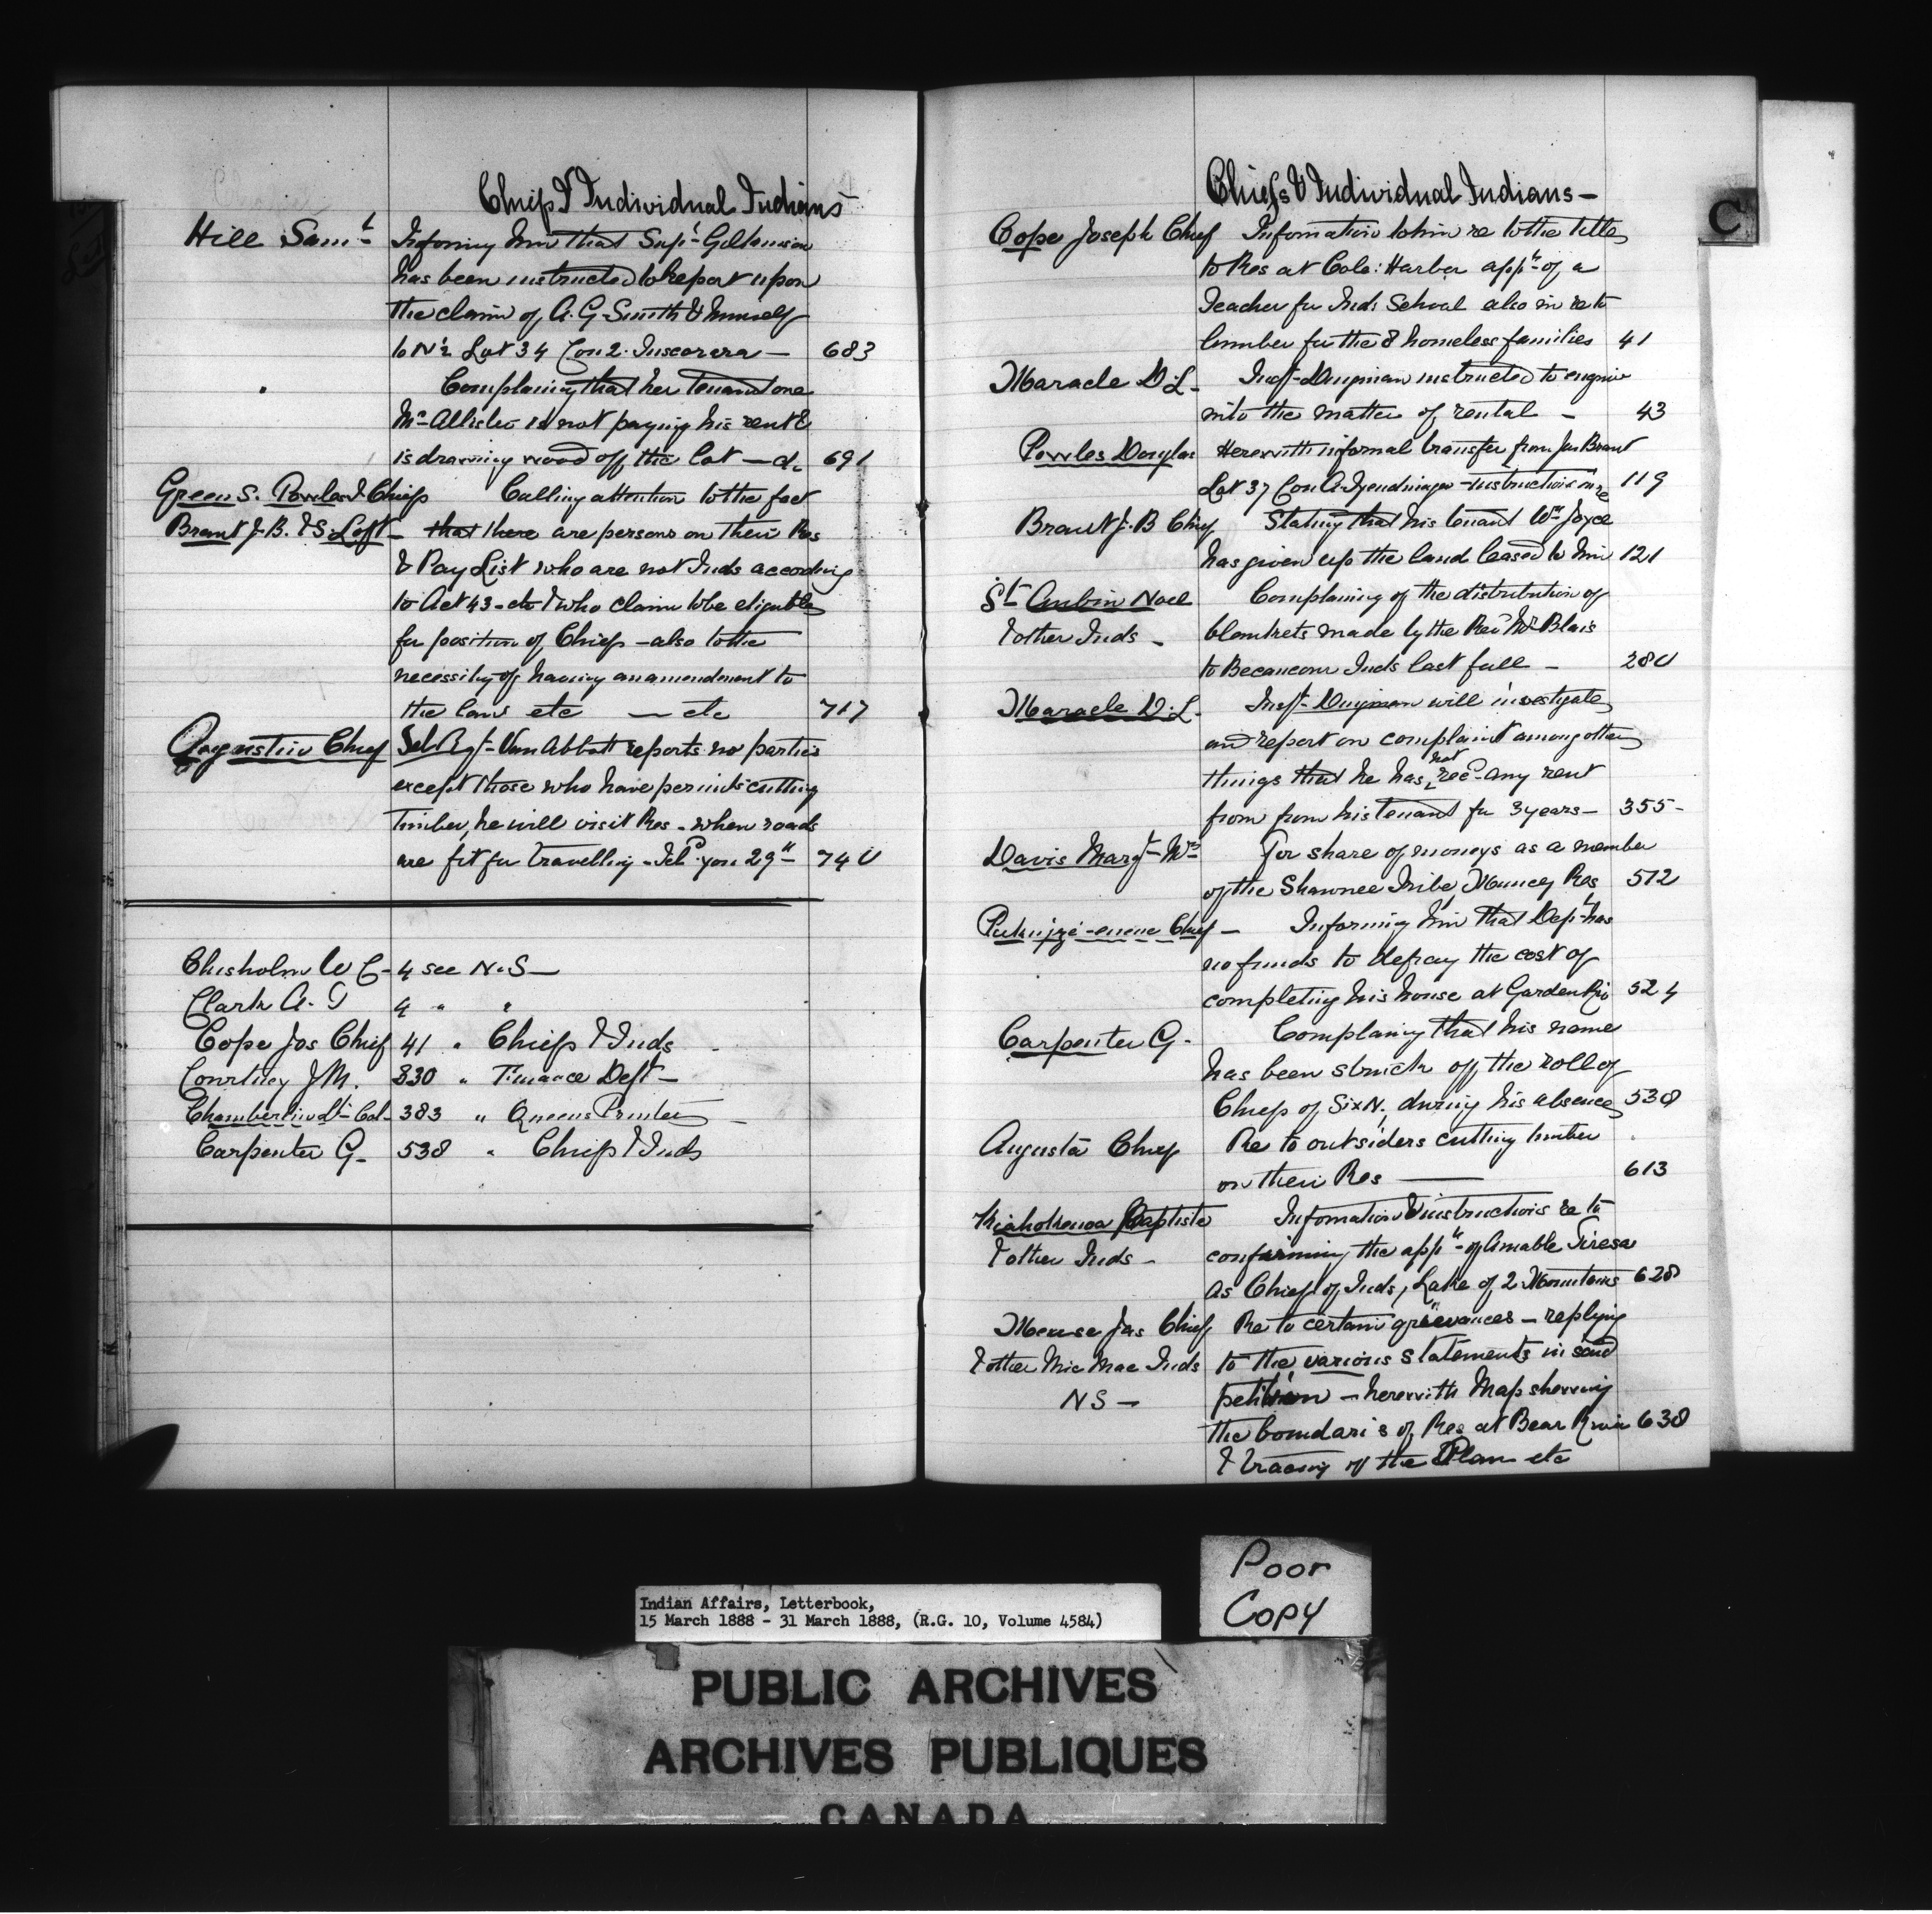 Chiefs & Individual Indians
Hill Saml Informing him that Supt Gilkinson
has been instructed to Report upon
the claim of A. G. Smith & himself
to N½ Lot 34 Con 2. Tuscarora — 683
Complaining that her tenant one
Mc Allister is not paying his rent &
is drawing wood off the lot — &c 691
Green S. Powles & Chiefs Calling attention to the fact
Brant J. B. & S. Loft that there are persons on their Res
& Pay List who are not Inds according
to Act 43 - etc & who claim to be eligible
for position of Chiefs - also to the
necessity of having an amendment to
the law etc — etc 717
Augustin Chief Sel Agt Van Abbott reports no parties
except those who have permits cutting
Timber, he will visit Res. when roads
are fit for travelling. 29th 740
Chisholm W C - 4 see N. S —
Clark A. 4 " "
Cope Jos Chief 41 " Chiefs & Inds
Courtney J M. 330 " Finance Dept —
Chamberlin Lt Col 383 " Queens Printer —
Carpenter G - 538 " Chiefs & Inds
Chiefs & Individual Indians —
C
Cope Joseph Chief Information to him re to the title
to Res at Cole: Harbor appt of a
Teacher for Inds School also in re to
lumber for the 8 homeless families 41
Maracle D. L - Inspr Dingman instructed to enquire
into the matter of rental — 43
Powles Douglas Herewith informal transfer from Jas Brant
Lot 37 Con A. Tyendinaga - instructions in re 119
Brant J. B Chief Stating that his tenant Wm Joyce
has given up the land leased to him 121
St Aubin Noel Complaining of the distribution of
& other Inds - blankets made by the Revd Mr Blais
to Becancour Inds last fall — 280
Maracle D. L - Inspr Dingman will investigate
and report on complaint among other
things that he has not recd any rent
from from his tenant for 3 years — 355 -
Davis Margt Mrs For share of moneys as a member
of the Shawnee Tribe, Muncey Res 512
Chief — Informing him that Dept has
no funds to defray the cost of
completing his house at Garden Riv 524
Carpenter G - Complaining that his name
has been struck off the roll of
Chiefs of Six N, during his absence 538
Augusta Chief Re to outsiders cutting timber
on their Res —— 613
Baptiste Information & instructions re to
& other Inds - confirming the appt of Amable
as Chief of Inds, Lake of 2 Mountains 628
Meuse Jas Chief Re to certain grievances — replying
& other Mic Mac Inds to the various statements in said
NS — petition — herewith Map shewing
the boundaris of Res at Bear River 638
& tracing of the Plan etc
Poor
Copy
Indian Affairs, Letterbook,
15 March 1888 - 31 March 1888, (R.G. 10, Volume 4584)
PUBLIC ARCHIVES
ARCHIVES PUBLIQUES
CANADA